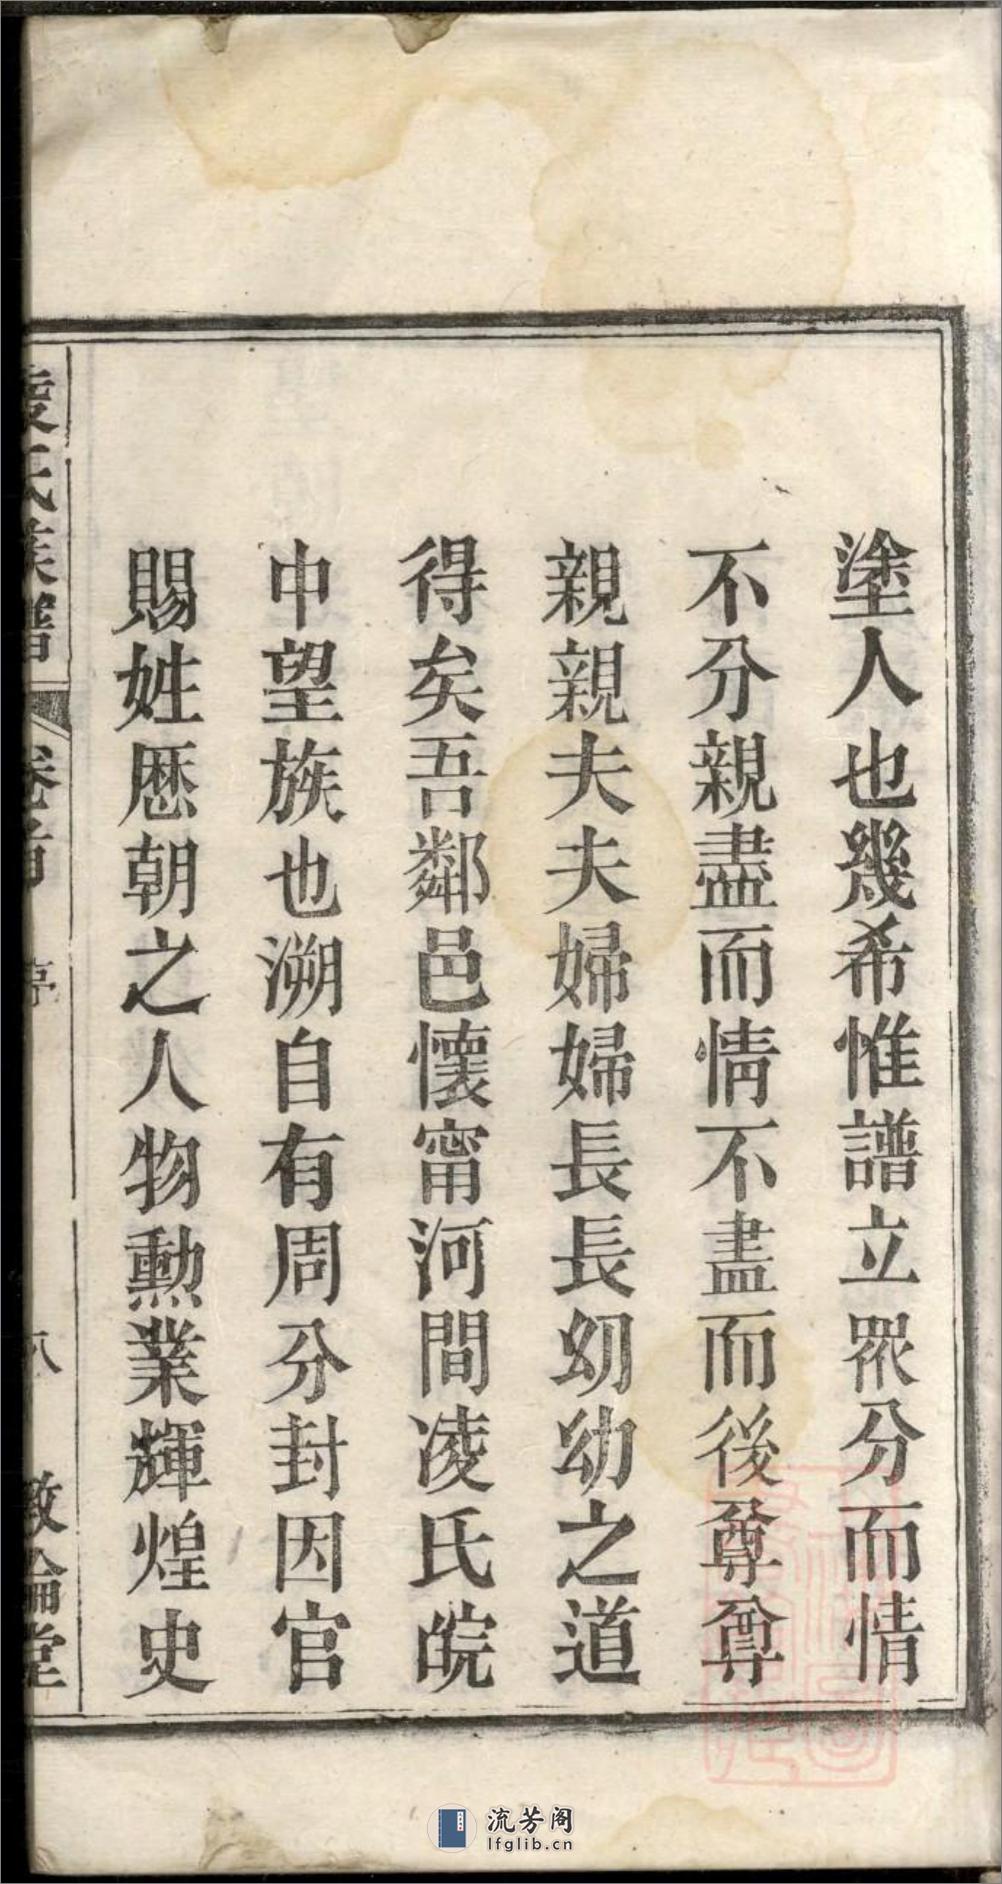 塗人也幾希惟譜立眾分而情
不分親盡而情不盡而後尊尊
親親夫夫婦婦長長幼幼之道
得矣吾鄰邑懷甯河間凌氏皖
中望族也溯自有周分封因官
賜姓歴朝之人物勳業輝煌史
凌氏族譜
卷首
序
八
敦倫堂
流芳阁
lfglib.cn